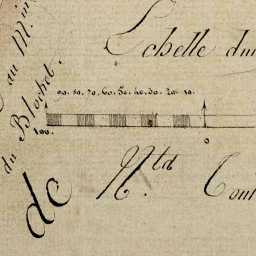 au M.in
du Blochet.
Echelle du
90. 80. 70. 60. 50. 40. 30. 20. 10.
100. 0
de N.ta Con